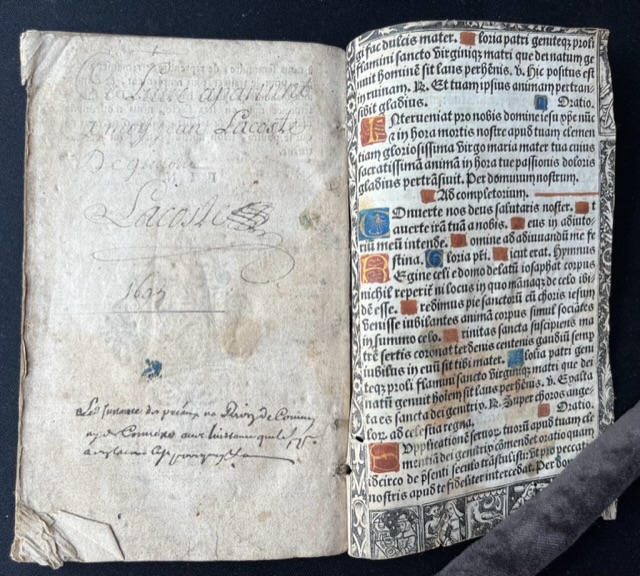 Ce Livre apartient
a moy jean Lacoste
Lacoste
gi fac dulcis mater. loria patri geniteqȝ proli
flamini sancto virginiqȝ matri que dei natum ge
nuit hominē sit laus perhēnis. v. Hic positus est
in ruinam. R. Et tuam ipsius animam pertran
sibit gladius. Oratio.
INterueniat pro nobis domine iesu xp̄e nūc
⁊ in hora mortis nostre apud tuam clemen
tiam gloriosissima virgo maria mater tua cuius
sacratissimā animā in hora tue passionis doloris
gladius pertrāsiuit. Per dominum nostrum.
Ad completorium.
COnuerte nos deus salutaris noster. t
auerte irā tuā a nobis. eus in adiuto-
riū meū intende. omine ad adiuuandū me fe
stina. Gloria pr̄i. icut erat. Hymnus
REgine celi e domo delatū iosaphat corpus
nichil reperit ni locus in quo manaqȝ de celo ibi
dē esse. redimus pie sanctorū cū choris iesum
venisse iubilantes animā corpus simul sociātes
in summo celo. rinitas sancta suscipiens ma
trē sertis coronat terdenis centenis gaudiū semp
iubilus in euū sit tibi mater. loria patri geni
teqȝ proli flamini sancto virginiqȝ matri que dei
natū genuit hoīem sit laus perhēnis. v. Exalta
ta es sancta dei genitrix. R. Super choros ange-
lorū ad celestia regna. Oratio.
SUpplicationē seruorū tuorū apud tuam cle
mentiā dei genitrix cōmendet oratio quam
idcirco de p̄senti seculo trāstulisti: vt pro peccatis
nostris apud te fideliter intercedat. Per dom